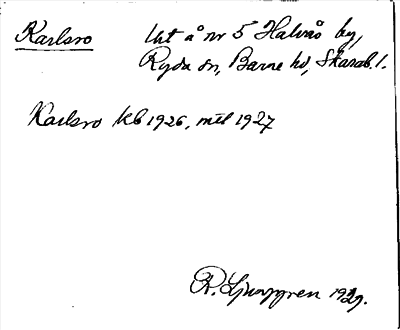 Karlsro
Lht å nr 5 Halvås by,
Ryda sn, Barne hd, Skarab. l.
Karlsro kb 1926, mtl 1927
R. Ljunggren 1929.